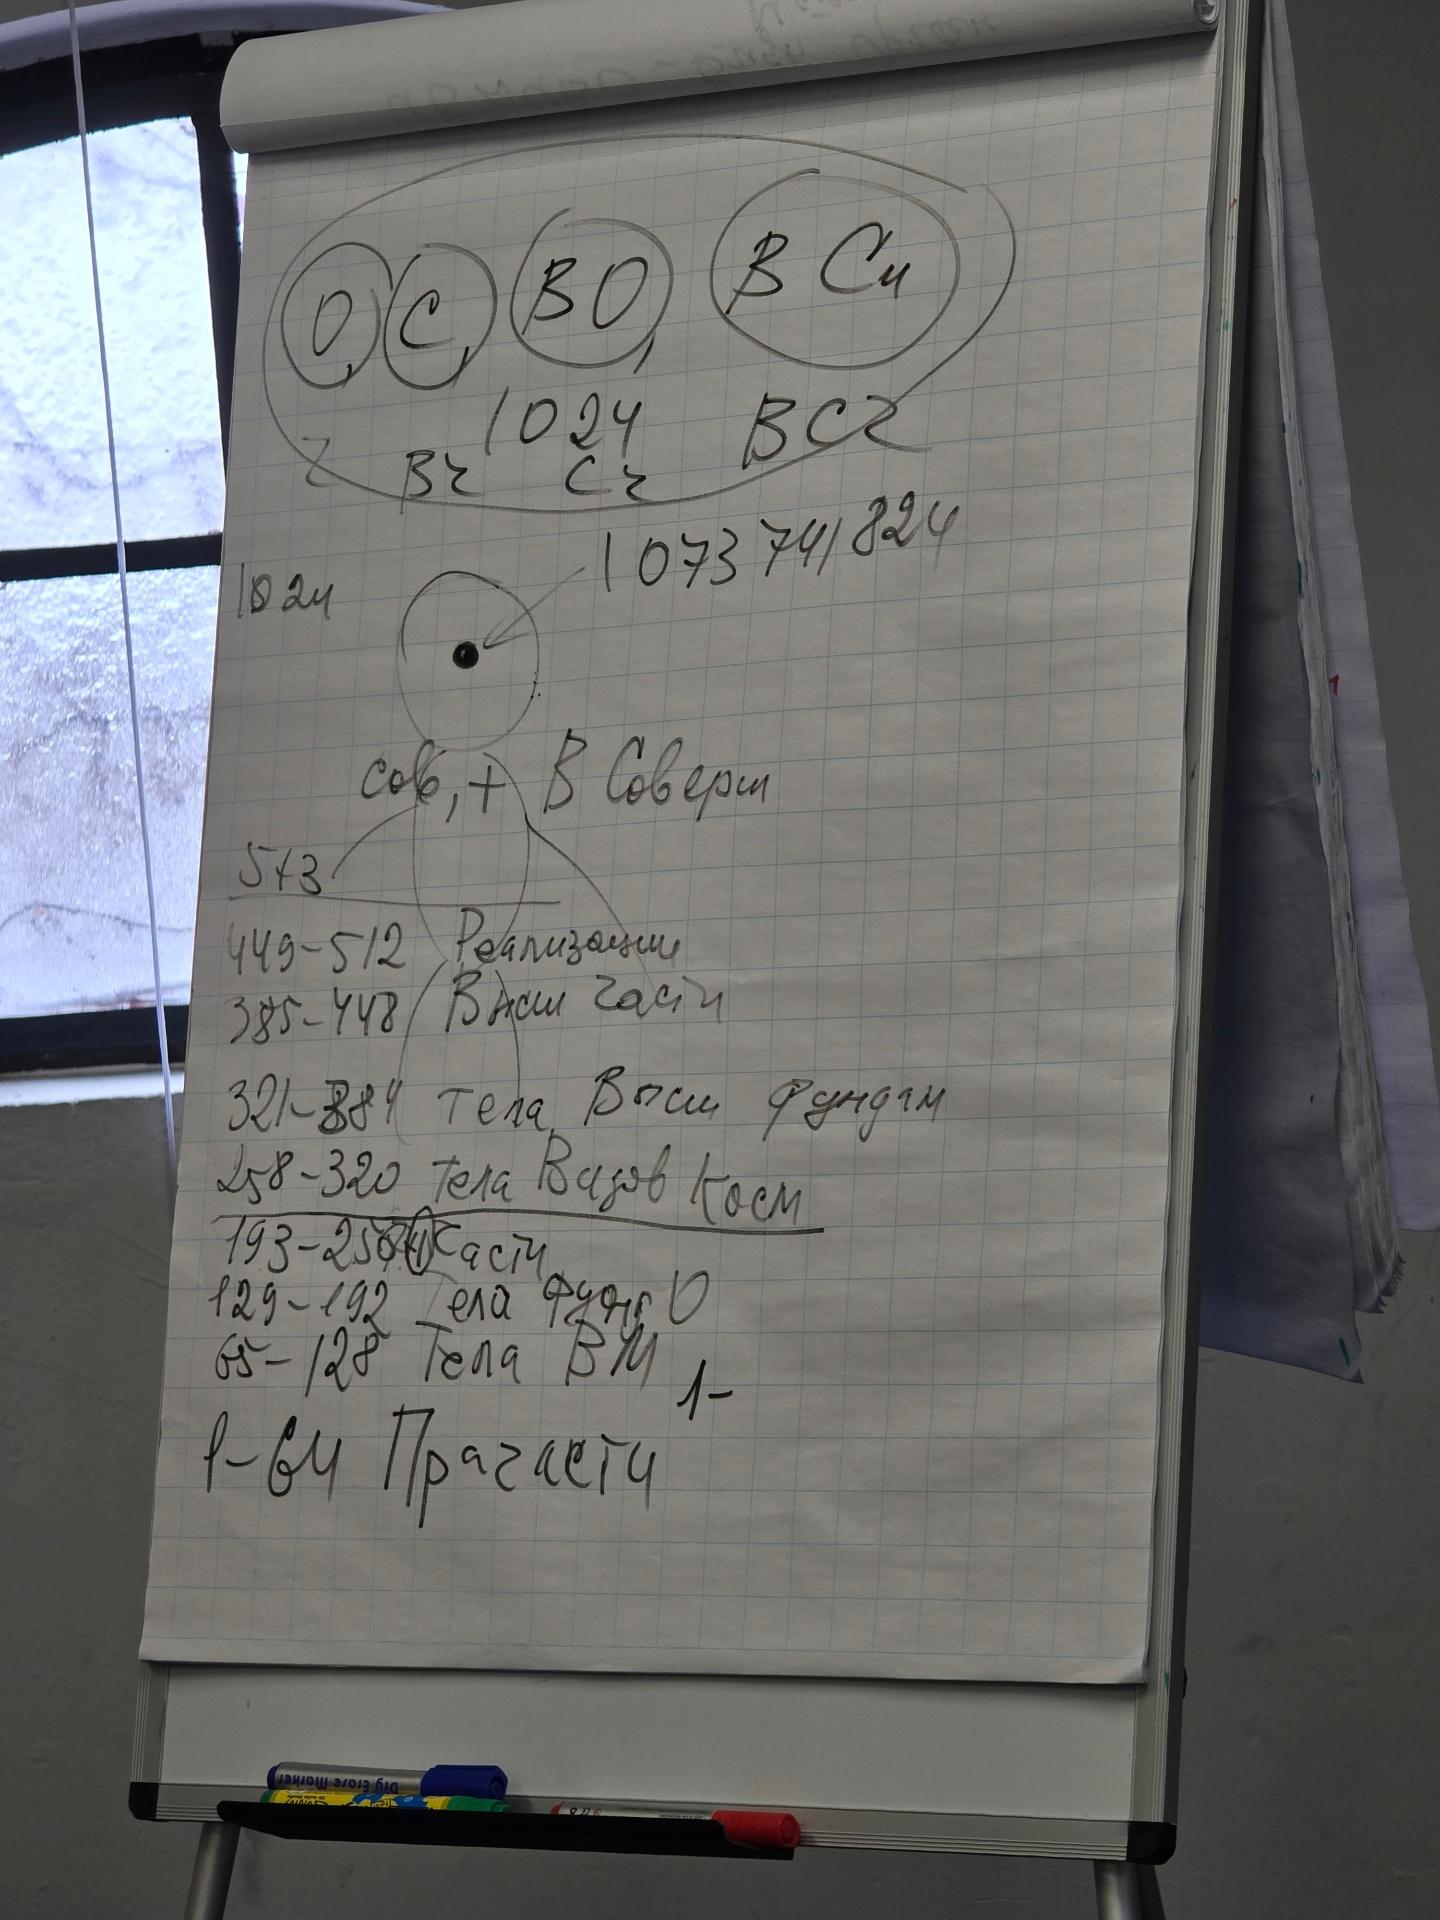 О, С, ВО, ВСи
1024 ВСч
ч Вч Сч
1 073 741 824
1024
сов, + В Соверш
5+3
449-512 Реализации
385-448 Высш части
321-384 тела Высш фундам
258-320 тела Видов Косм
193-256+1 Части
129-192 Тела Фунд О
65-128 Тела ВМ
1-
1-64 Прачасти
Dry Erase Marker